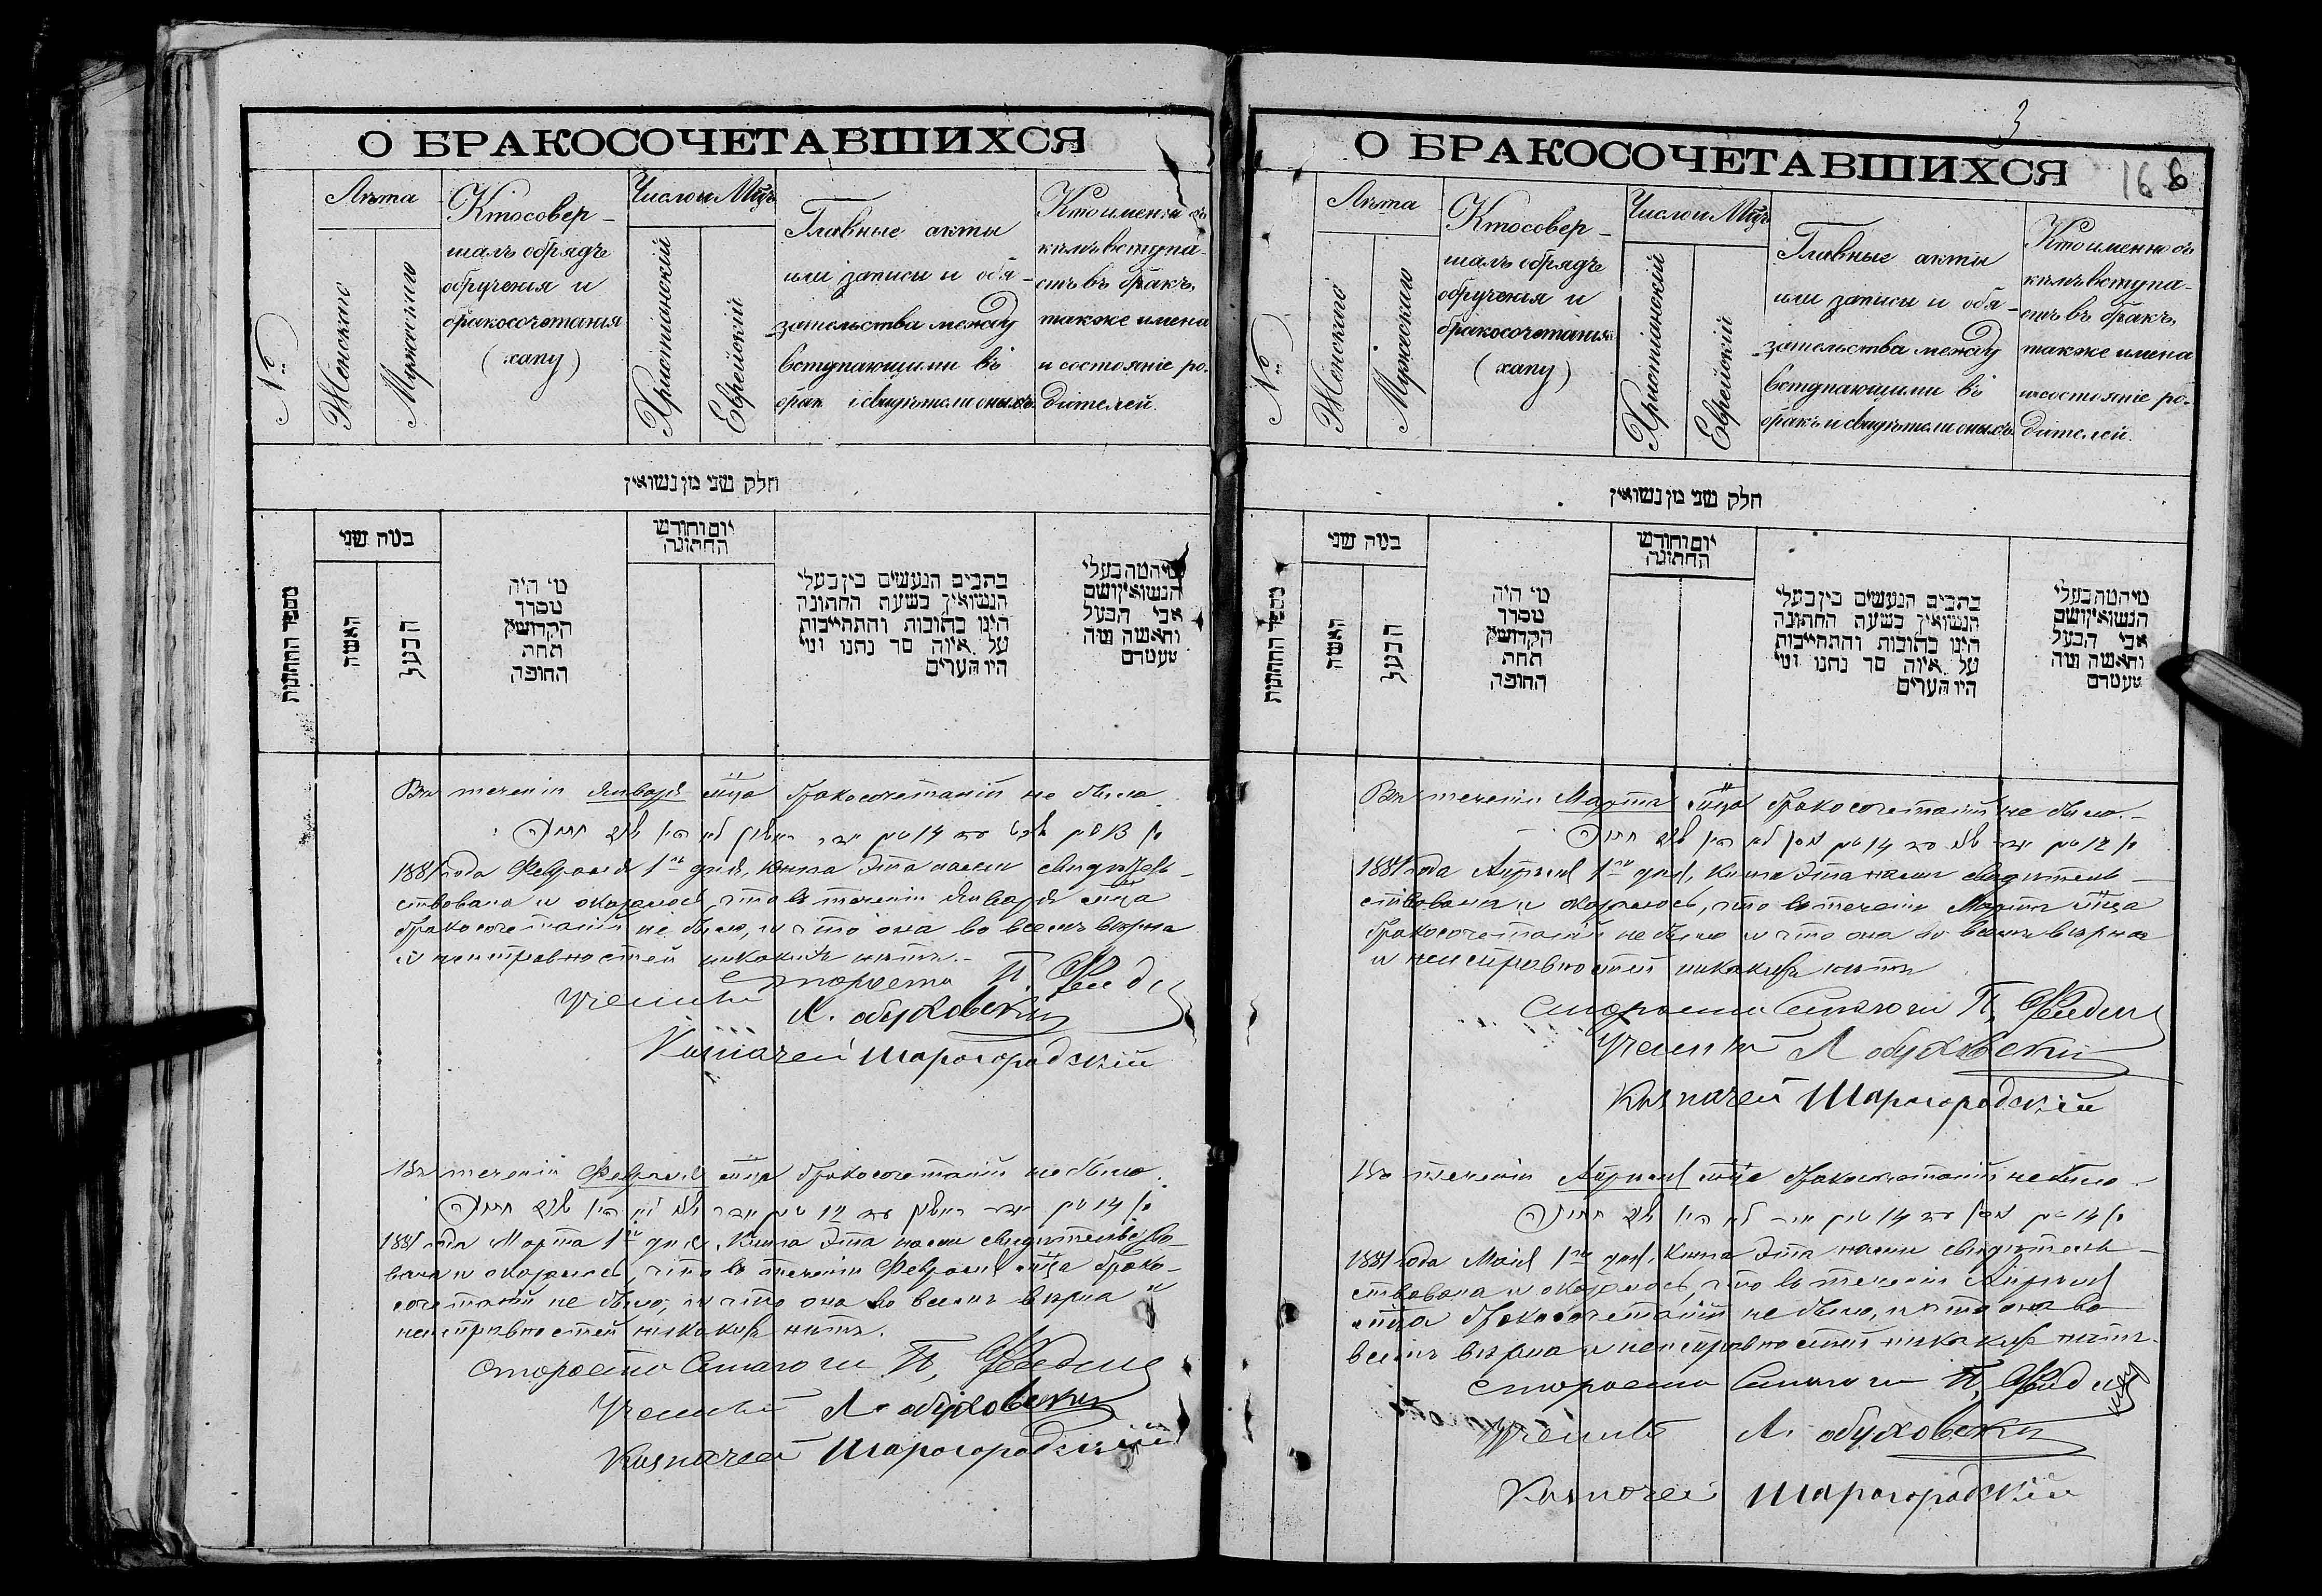 О БРАКОСОЧЕТАВШИХСЯ
№
Лѣта
Женскаго
Мужескаго
Кто совер-
шалъ обрядъ
обрученія и
бракосочетанія
(хапу)
Число и Мѣцъ
Христіанскій
Еврейскій
Главные акты
или записи и обя-
зательства между
вступающими въ
бракъ и свидѣтели оныхъ.
Кто именно съ
кѣмъ вступа-
етъ въ бракъ,
также имена
и состояніе ро-
дителей.
חלק שני מן נשואין
מספר החתונות
כמה שני
האשה
הבעל
מי היה
מסדר
הקדושין
תחת
החופה
יום וחודש
החתונה
כתבים הנעשים בין בעלי
הנשואין בשעת החתונה
היינו כתובות והתחייבות
על איזה סך נתנו ומי
היו העדים
מי המה בעלי
הנשואין ושם
אבי הבעל
והאשה ומה
מעמדם
Въ теченіи Января мѣца бракосочетаній не было.
1881 года Февраля 1го дня, книга эта нами свидѣтель-
ствована и оказалось, что въ теченіи Января мѣца
бракосочетаній не было, и что она во всемъ вѣрна
и неисправностей никакихъ нѣтъ.
Староста П.
Ученый Л. Обуховскій
Казначей Шарогородскій
Въ теченіи Февраля мѣца бракосочетаній не было.
1881 года Марта 1го дня, Книга эта нами свидѣтельство-
вана и оказалось, что въ теченіи Февраля мѣца брако-
сочетаній не было, и что она во всемъ вѣрна и
неисправностей никакихъ нѣтъ.
Староста Синагоги П.
Ученый Л. Обуховскій
Казначей Шарогородскій
3
О БРАКОСОЧЕТАВШИХСЯ
16
№
Лѣта
Женскаго
Мужескаго
Кто совер-
шалъ обрядъ
обрученія и
бракосочетанія
(хапу)
Число и Мѣцъ
Христіанскій
Еврейскій
Главные акты
или записи и обя-
зательства между
вступающими въ
бракъ и свидѣтели оныхъ.
Кто именно съ
кѣмъ вступа-
етъ въ бракъ,
также имена
и состояніе ро-
дителей.
חלק שני מן נשואין
מספר החתונות
כמה שני
האשה
הבעל
מי היה
מסדר
הקדושין
תחת
החופה
יום וחודש
החתונה
כתבים הנעשים בין בעלי
הנשואין בשעת החתונה
היינו כתובות והתחייבות
על איזה סך נתנו ומי
היו העדים
מי המה בעלי
הנשואין ושם
אבי הבעל
והאשה ומה
מעמדם
Въ теченіи Марта мѣца бракосочетаній не было.
1881 года Апрѣля 1го дня, Книга эта нами свидѣтель-
ствована и оказалось, что въ теченіи Марта мѣца
бракосочетаній не было и что она во всемъ вѣрна
и неисправностей никакихъ нѣтъ
Староста Синагоги П.
Ученый Л. Обуховскій
Казначей Шарогородскій
Въ теченіи Апрѣля мѣца бракосочетаній не было.
1881 года Мая 1го дня, Книга эта нами свидѣтель-
ствована и оказалось, что въ теченіи Апрѣля
мѣца бракосочетаній не было, и что она во
всемъ вѣрна и неисправностей никакихъ нѣтъ.
Староста Синагоги П.
Ученый Л. Обуховскій
Казначей Шарогородскій